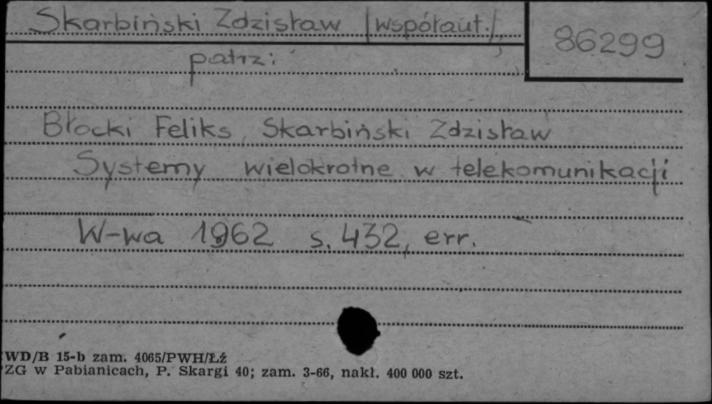 Skarbiński Zdzisław /współaut./,
86299
patrz:
Błocki Feliks, Skarbiński Zdzisław
Systemy wielokrotne w telekomunikacji
W-wa 1962 s. 432, err.
WD/B 15-b zam. 4065/PWH/Łź
ZG w Pabianicach, P. Skargi 40; zam. 3-66, nakł. 400 000 szt.